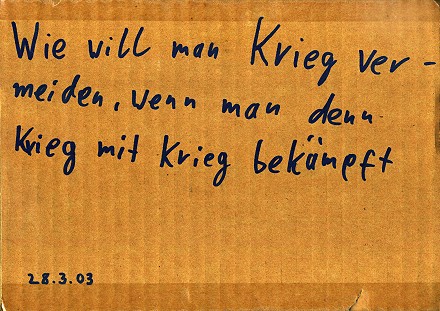 Wie will man Krieg ver-
meiden, wenn man denn
Krieg mit Krieg bekämpft
28.3.03